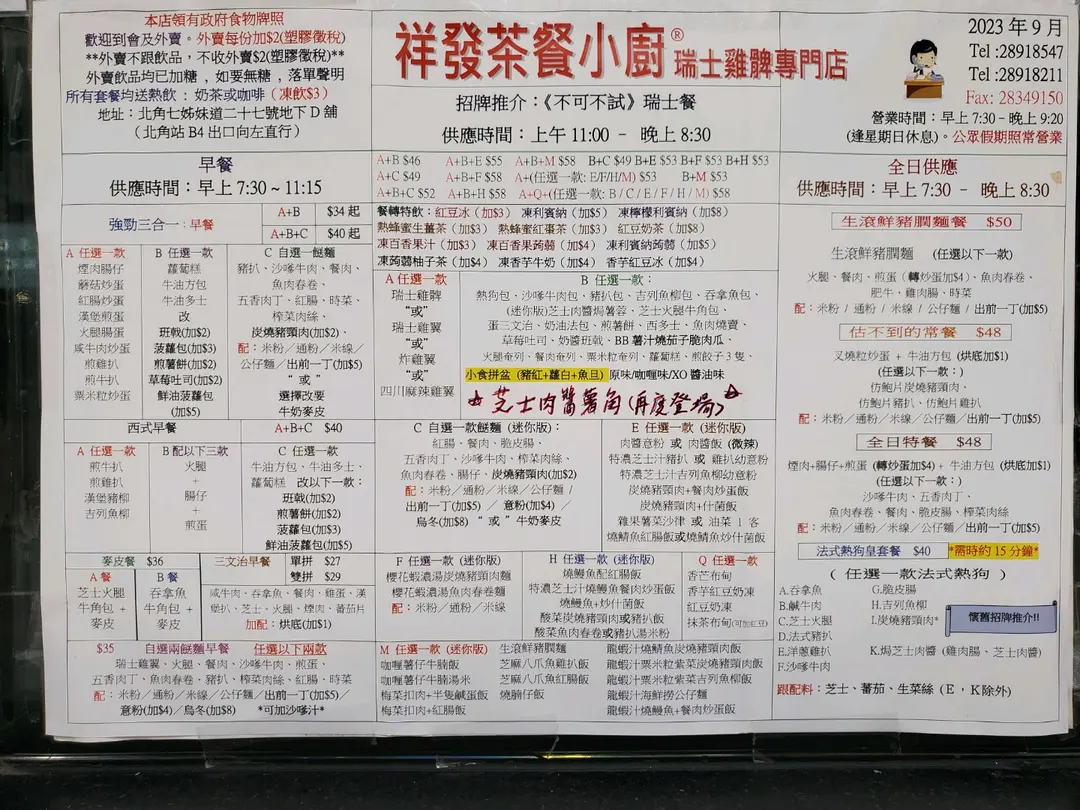 本店領有政府食物牌照
歡迎到會及外賣。外賣每份加$2(塑膠徵稅)
**外賣不跟飲品，不收外賣$2(塑膠徵稅)**
外賣飲品均已加糖，如要無糖，落單聲明
所有套餐均送熱飲：奶茶或咖啡（凍飲$3）
地址：北角七姊妹道二十七號地下 D 舖
（北角站 B4 出口向左直行）
祥發茶餐小廚® 瑞士雞髀專門店
招牌推介：《不可不試》瑞士餐
供應時間：上午 11:00 – 晚上 8:30
2023 年 9 月
Tel :28918547
Tel :28918211
Fax: 28349150
營業時間：早上 7:30 – 晚上 9:20
(逢星期日休息)。公眾假期照常營業
早餐
供應時間：早上 7:30 ~ 11:15
強勁三合一：早餐
A+B $34 起
A+B+C $40 起
A 任選一款
煙肉腸仔
蘑菇炒蛋
紅腸炒蛋
漢堡煎蛋
火腿腸蛋
咸牛肉炒蛋
煎雞扒
煎牛扒
粟米粒炒蛋
B 任選一款
蘿蔔糕
牛油方包
牛油多士
改
班戟(加$2)
菠蘿包(加$3)
煎薯餅(加$2)
草莓吐司(加$2)
鮮油菠蘿包
(加$5)
C 自選一餸麵
豬扒、沙嗲牛肉、餐肉、
魚肉春卷、
五香肉丁、紅腸、時菜、
榨菜肉絲、
炭燒豬頸肉(加$2)、
配：米粉／通粉／米線／
公仔麵／出前一丁(加$5)
“ 或 ”
選擇改要
牛奶麥皮
西式早餐
A+B+C $40
A 任選一款
煎牛扒
煎雞扒
漢堡豬柳
吉列魚柳
B 配以下三款
火腿
+
腸仔
+
煎蛋
C 任選一款
牛油方包、牛油多士、
蘿蔔糕 改以下一款：
班戟(加$2)
煎薯餅(加$2)
菠蘿包(加$3)
鮮油菠蘿包(加$5)
麥皮餐 $36
A 餐
芝士火腿
牛角包 +
麥皮
B 餐
吞拿魚
牛角包 +
麥皮
三文治早餐
單拼 $27
雙拼 $29
咸牛肉、吞拿魚、餐肉、雞蛋、漢
堡扒、芝士、火腿、煙肉、蕃茄片
加配：烘底(加$1)
$35 自選兩餸麵早餐 任選以下兩款
瑞士雞翼、火腿、餐肉、沙嗲牛肉、煎蛋、
五香肉丁、魚肉春卷、豬扒、榨菜肉絲、紅腸、時菜
配：米粉／通粉／米線／公仔麵/出前一丁(加$5)/
意粉(加$4)／烏冬(加$8) *可加沙嗲汁*
A+B $46 A+B+E $55 A+B+M $58 B+C $49 B+E $53 B+F $53 B+H $53
A+C $49 A+B+F $58 A+(任選一款: E/F/H/M) $53 B+M $53
A+B+C $52 A+B+H $58 A+Q+(任選一款: B / C / E / F / H / M) $58
餐轉特飲：紅豆冰（加$3） 凍利賓納（加$5） 凍檸檬利賓納（加$8）
熱蜂蜜生薑茶（加$3） 熱蜂蜜紅棗茶（加$3） 紅豆奶茶（加$8）
凍百香果汁（加$3） 凍百香果蒟蒻（加$4） 凍利賓納蒟蒻（加$5）
凍蒟蒻柚子茶（加$4） 凍香芋牛奶（加$4） 香芋紅豆冰（加$4）
A 任選一款
瑞士雞髀
“或”
瑞士雞翼
“或”
炸雞翼
“或”
四川麻辣雞翼
B 任選一款：
熱狗包、沙嗲牛肉包、豬扒包、吉列魚柳包、吞拿魚包、
(迷你版)芝士肉醬焗薯蓉、芝士火腿牛角包、
蛋三文治、奶油法包、煎薯餅、西多士、魚肉燒賣、
草莓吐司、奶醬班戟、BB 薯汁燒茄子脆肉瓜、
火腿奄列、餐肉奄列、粟米粒奄列、蘿蔔糕、煎餃子 3 隻、
小食拼盆（豬紅+蘿白+魚旦）原味/咖喱味/XO 醬油味
☆芝士肉醬薯角(再度登場)☆
C 自選一款餸麵 (迷你版)：
紅腸、餐肉、脆皮腸、
五香肉丁、沙嗲牛肉、榨菜肉絲、
魚肉春卷、腸仔、炭燒豬頸肉(加$2)
配：米粉／通粉／米線／公仔麵 /
出前一丁(加$5) ／意粉(加$4) ／
烏冬(加$8) “ 或 ”牛奶麥皮
E 任選一款 (迷你版)：
肉醬意粉 或 肉醬飯 (微辣)
特濃芝士汁豬扒 或 雞扒幼意粉
特濃芝士汁吉列魚柳幼意粉
炭燒豬頸肉+餐肉炒蛋飯
炭燒豬頸肉+什菌飯
雜果薯菜沙律 或 油菜 1 客
燒鯖魚紅腸飯或燒鯖魚炒什菌飯
F 任選一款 (迷你版)
櫻花蝦濃湯炭燒豬頸肉麵
櫻花蝦濃湯魚肉春卷麵
配：米粉／通粉／米線
H 任選一款 (迷你版)
燒鰻魚配紅腸飯
特濃芝士汁燒鰻魚餐肉炒蛋飯
燒鰻魚+炒什菌飯
酸菜炭燒豬頸肉或豬扒飯
酸菜魚肉春卷或豬扒湯米粉
Q 任選一款
香芒布甸
香芋紅豆奶凍
紅豆奶凍
抹茶布甸(可加紅豆)
M 任選一款 (迷你版)
咖喱薯仔牛腩飯
咖喱薯仔牛腩湯米
梅菜扣肉+半隻鹹蛋飯
梅菜扣肉+紅腸飯
生滾鮮豬膶麵
芝麻八爪魚雞扒飯
芝麻八爪魚紅腸飯
燒腩仔飯
龍蝦汁燒鯖魚炭燒豬頸肉飯
龍蝦汁粟米粒紫菜炭燒豬頸肉飯
龍蝦汁粟米粒紫菜吉列魚柳飯
龍蝦汁海鮮撈公仔麵
龍蝦汁燒鰻魚+餐肉炒蛋飯
全日供應
供應時間：早上 7:30 – 晚上 8:30
生滾鮮豬膶麵餐 $50
生滾鮮豬膶麵 (任選以下一款)
火腿、餐肉、煎蛋(轉炒蛋加$4)、魚肉春卷、
肥牛、雞肉腸、時菜
配：米粉 / 通粉 / 米線 / 公仔麵 / 出前一丁(加$5)
估不到的常餐 $48
叉燒粒炒蛋 + 牛油方包 (烘底加$1)
(任選以下一款：)
仿鮑片炭燒豬頸肉、
仿鮑片豬扒、仿鮑片雞扒
配：米粉／通粉／米線／公仔麵／出前一丁(加$5)
全日特餐 $48
煙肉+腸仔+煎蛋 (轉炒蛋加$4) + 牛油方包 (烘底加$1)
(任選以下一款：)
沙嗲牛肉、五香肉丁、
魚肉春卷、餐肉、脆皮腸、榨菜肉絲
配：米粉／通粉／米線／公仔麵／出前一丁(加$5)
法式熱狗皇套餐 $40 *需時約 15 分鐘*
( 任選一款法式熱狗 )
A.吞拿魚
B.鹹牛肉
C.芝士火腿
D.法式豬扒
E.洋蔥雞扒
F.沙嗲牛肉
G.脆皮腸
H.吉列魚柳
I.炭燒豬頸肉*
K.焗芝士肉醬（雞肉腸、芝士肉醬）
懷舊招牌推介!!
跟配料：芝士、蕃茄、生菜絲（E，K除外）